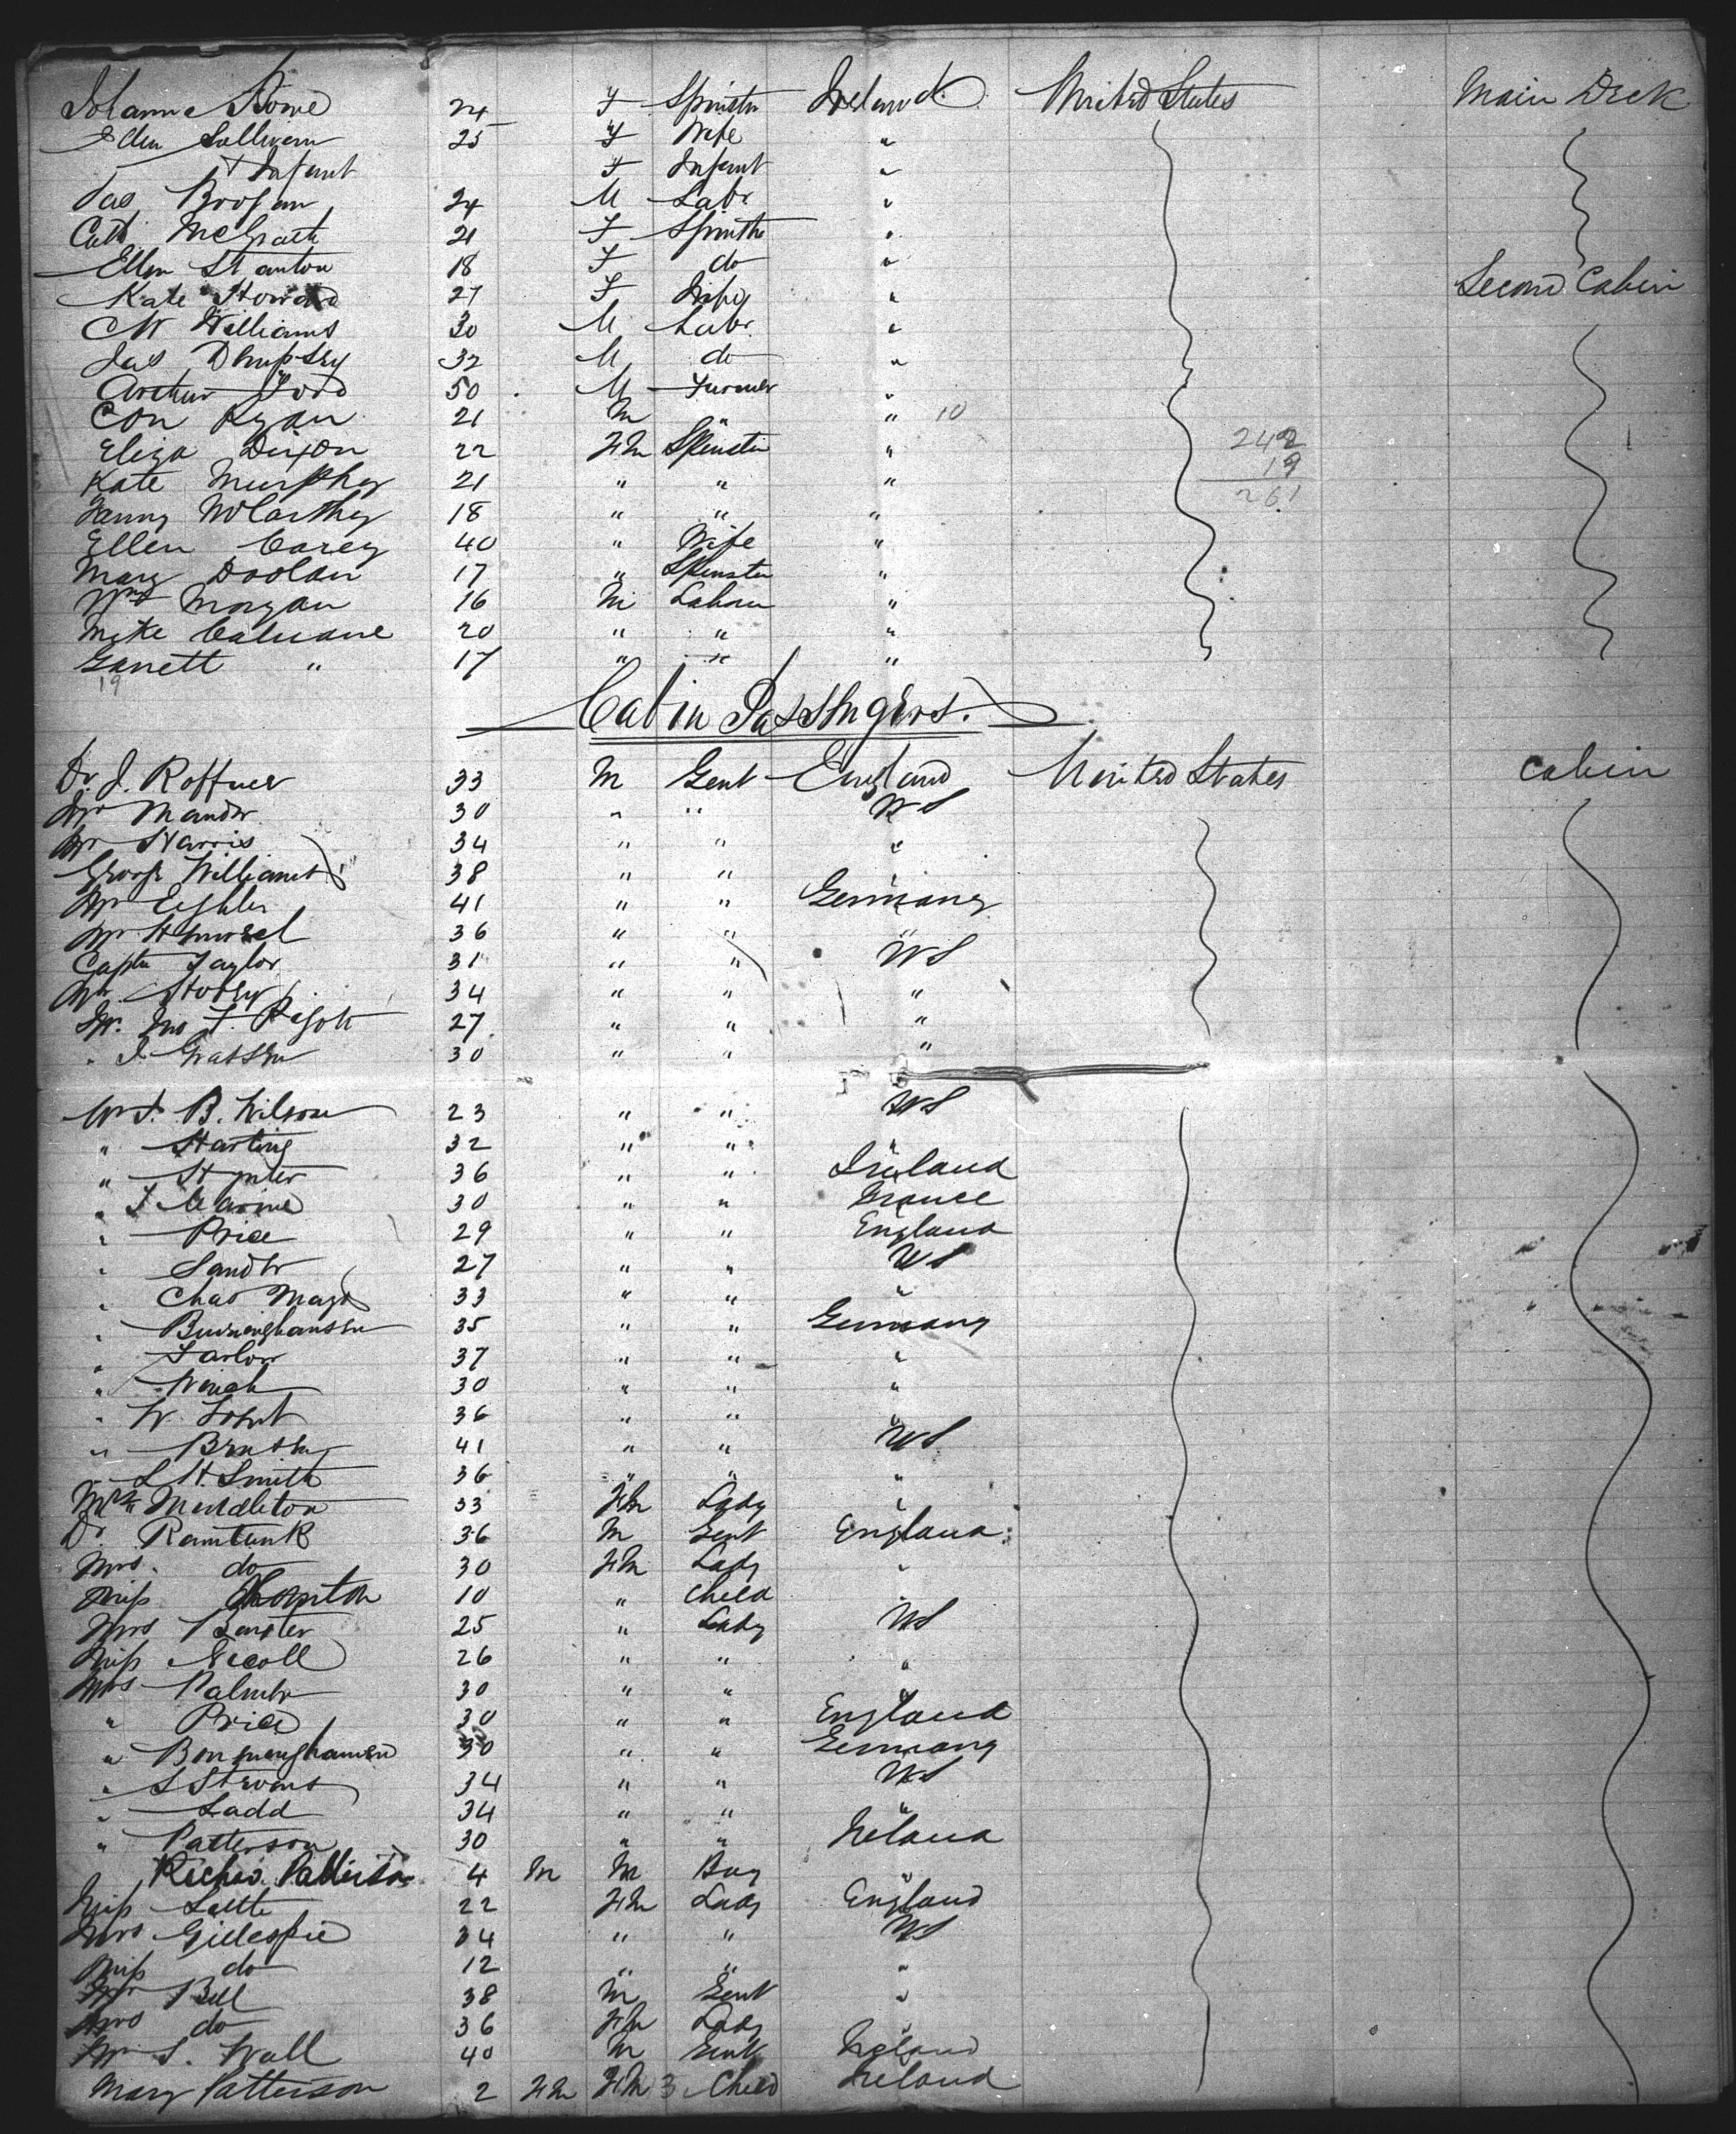 Johanna 24 F Spinstr Ireland United States Main Deck
Ellen Sullivan 25 F Wife "
" + Infant F Infant "
Jas Brogan 24 M Labr "
Cath McGrath 21 F Spinstr "
Ellen Stanton 18 F do "
Kate Howard 27 F Wife " Second Cabin
C W Williams 30 M Labr "
Jas Dempsey 32 M do "
Arthur Ford 50 M Farmer "
Con Ryan 21 M " " 10
Eliza Dixon 22 Fm Spinster " 242
19
Kate Murphy 21 " " " 261
Fanny McCarthy 18 " " "
Ellen Carey 40 " Wife "
Mary Doolan 17 " Spinster "
Wm Morgan 16 M Labour "
Mike Caluane 20 " " "
Garrett " 17 " " "
19
Cabin Passengers.
Dr. J. Roffner 33 M Gent England United States Cabin
Mr Mander 30 " " US
Mr Harris 34 " " "
George Williams 38 " " "
Mr 41 " " Germany
Mr 36 " " "
Captn Taylor 31 " " US
Mr. Storey 34 " " "
Mr. Jno F. Pigott 27 " " "
" J. 30 " " "
Mr J. B. Wilson 23 " " US
" Harting 32 " " "
" 36 " " Ireland
" F Marine 30 " " France
" Price 29 " " England
" Sander 27 " " US
" Chas Mayo 33 " " "
" Burninghausen 35 " " Germany
" 37 " " "
" 30 " " "
" W. 36 " " "
" 41 " " US
" L H. Smith 36 " " "
Mrs Mendleton 33 Fm Lady "
Dr 36 M Gent England
Mrs. do 30 Fm Lady "
Miss 10 " Child "
Mrs 25 " Lady US
Miss Nicoll 26 " " "
Mrs Palmer 30 " " "
" Price 30 " " England
" 30 " " Germany
" S Stevens 34 " " US
" Ladd 34 " " "
" Patterson 30 " " Ireland
Richd. Patterson 4 M M Boy "
Miss 22 Fm Lady England
Mrs Gillespie 34 " " US
Miss do 12 " " "
Mr Bell 38 M Gent "
Mrs do 36 Fm Lady "
Mr S. Wall 40 M Gent Ireland
Mary Patterson 2 Fm Fm 3 Child Ireland